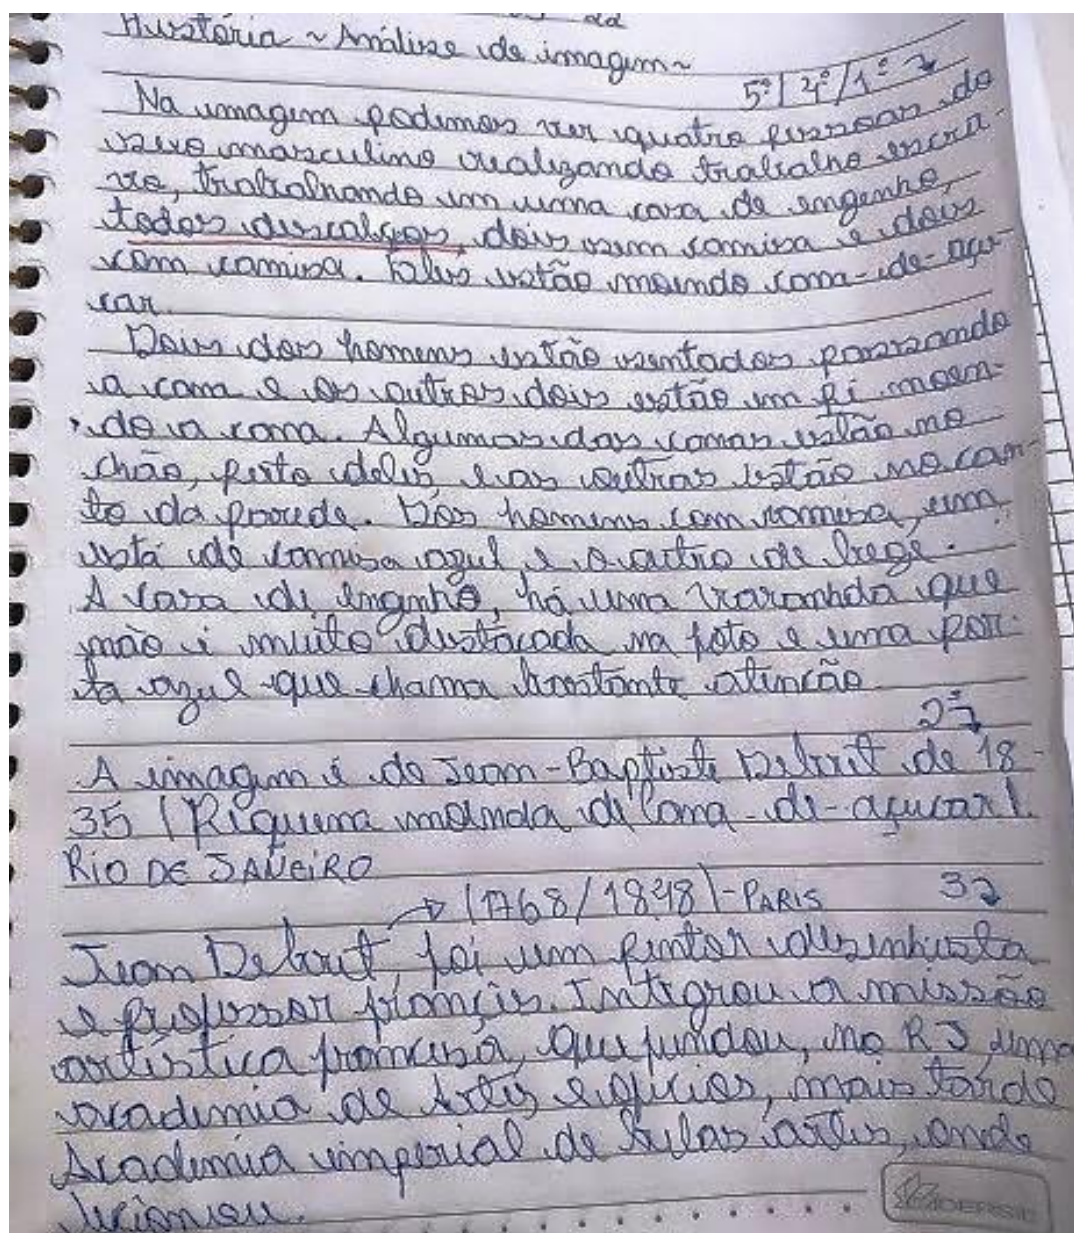 História ~ Análise de imagem ~
5º / 4º / 1º
Na imagem podemos ver quatro pessoas do
sexo masculino realizando trabalho escra-
vo, trabalhando em uma casa de engenho,
todos descalços, dois sem camisa e dois
com camisa. Eles estão moendo cana-de-açu-
car.
Dois dos homens estão sentados passando
a cana e os outros dois estão em pé moen-
do a cana. Algumas das canas estão no
chão, perto deles e as outras estão no can-
to da parede. Dos homens com camisa, um
está de camisa azul e o outro de bege.
A casa de engenho, há uma varanda que
não é muito destacada na foto e uma por-
ta azul que chama bastante atenção.
2º
A imagem é de Jean-Baptiste Debret de 18-
35 (Pequena moenda de Cana-de-açucar).
RIO DE JANEIRO
(1768/1848)-PARIS 3
Jean Debret, foi um pintor desenhista
e professor francês. Integrou a missão
artística francesa, que fundou, no RJ, uma
academia de Artes e ofícios, mais tarde
Academia imperial de belas artes, onde
lecionou.